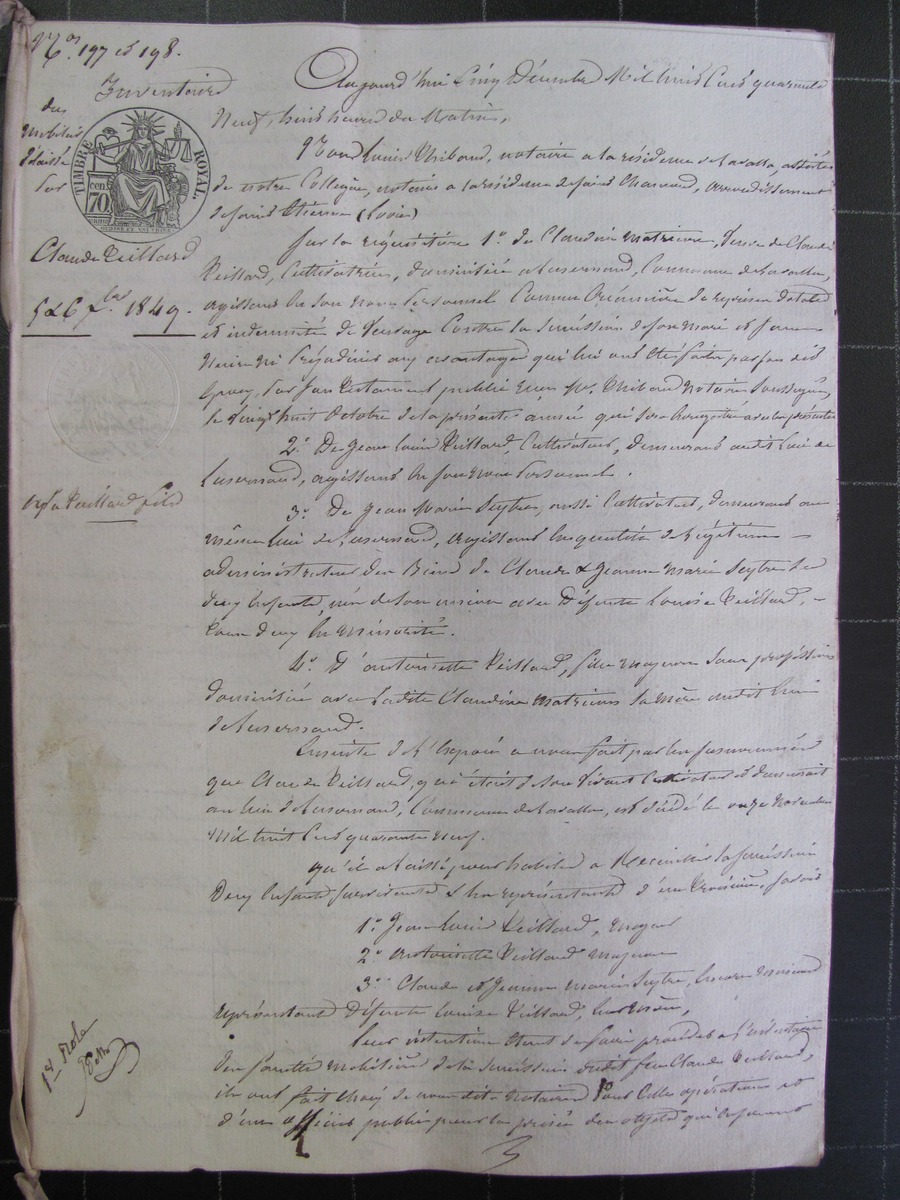 Nos. 197 et 198.
Inventaire
du
Mobilier
délaissé
par
TIMBRE ROYAL.
70 cen.
Claude Teillard
5 & 6 Xbre 1849.
Mr a Teillard fils
Aujourd'hui Cinq Décembre Mil huit Cent quarante
Neuf, huit heures du Matin,
Nous Louis Thibaud, notaire a la résidence de Lavalla, assistés
de notre Collègue, notaire a la résidence de Saint Chamond, arrondissement
de Saint Etienne (Loire)
Sur la réquisition 1o. de Claudine Matricon, Veuve de Claude
Teillard, Cultivatrice, domiciliée a Luzernaud, Commune de Lavalla,
agissant en son nom personnel Comme Créancière de reprises dotales
et indemnité de Veuvage Contre la Succession de son mari et sans
Nuire ni Préjudicier aux avantages qui lui ont été faits par son dit
époux, par son Testament public reçu Me. Thibaud Notaire soussigné,
le vingt huit Octobre de la présente année qui sera enregistré avec les présentes
2o. De Jean Louis Teillard, Cultivateur, demeurant audit Lieu de
Luzernaud, agissant en son nom Personnel.
3o. De Jean Marie Seytre, aussi Cultivateur, demeurant au
même lieu de Luzernaud, agissant en qualité de Légitime
administrateur des Biens de Claude & Jeanne Marie Seytre ses
deux enfants, nés de son union avec Défunte Louise Teillard,
tous deux en minorité.
4o. D'antoinette Teillard, fille majeure sans profession
domiciliée avec Ladite Claudine Matricon sa mère audit Lieu
de Luzernaud.
Ensuite de l'Exposé a nous fait par les susnommés
que Claude Teillard, qui était de son Vivant Cultivateur et demeurait
au lieu de Luzernaud, Commune de Lavalla, est décédé le onze Novembre
Mil huit Cent quarante neuf.
qu'il a laissé, pour habiles a Recueillir sa succession
Deux Enfants survivants & les représentants d'un troisième, savoir
1o. Jean Louis Teillard, majeur
2o. Antoinette Teillard majeure
3o. Claude et Jeanne Marie Seytre, encore mineurs
représentant Défunte Louise Teillard, leur mère,
Leur intention étant de faire procéder a l'inventaire
des facultés mobilières de la succession dudit feu Claude Teillard,
ils ont fait choix de nous dits Notaires Pour Cette opération et
d'un officier public pour la prisée des objets qui en seront
1er Rôle